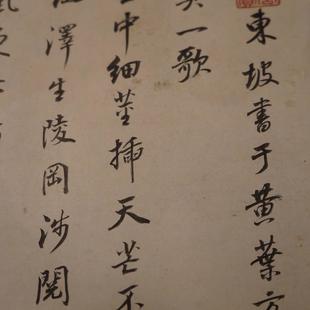 東坡書于黄葉
一歌
中細莖挿天芒不
澤生陵岡涉閱